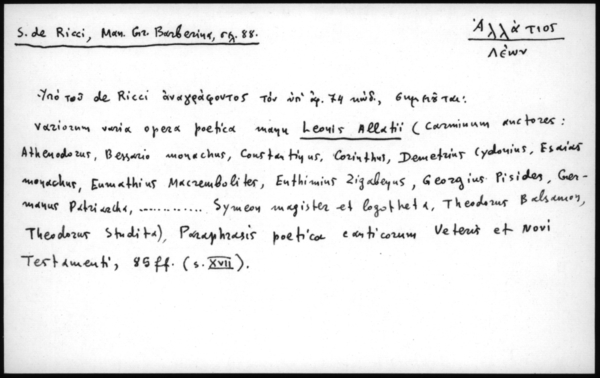 S. de Ricci, Man. Gr. Barberina, σχ. 88.
Ἀλλάτιος
Λέων
Ὑπό τοῦ de Ricci ἀναγράφοντος τόν ὑπ' ἀρ. 74 κώδ., σημειοῦται:
variorum varia opera poetica manu Leonis Allatii (Carminum auctores:
Athenodorus, Bessario monachus, Constantinus, Corinthus, Demetrius Cydonius, Esaias
monachus, Eumathius Macrembolites, Euthimius Zigabenus, Georgius Pisides, Ger-
manus Patriarcha, ............. Symeon magister et logotheta, Theodorus Balsamon,
Theodorus Studita), Paraphrasis poetica canticorum Veteris et Novi
Testamenti, 85 ff. (s. XVII).